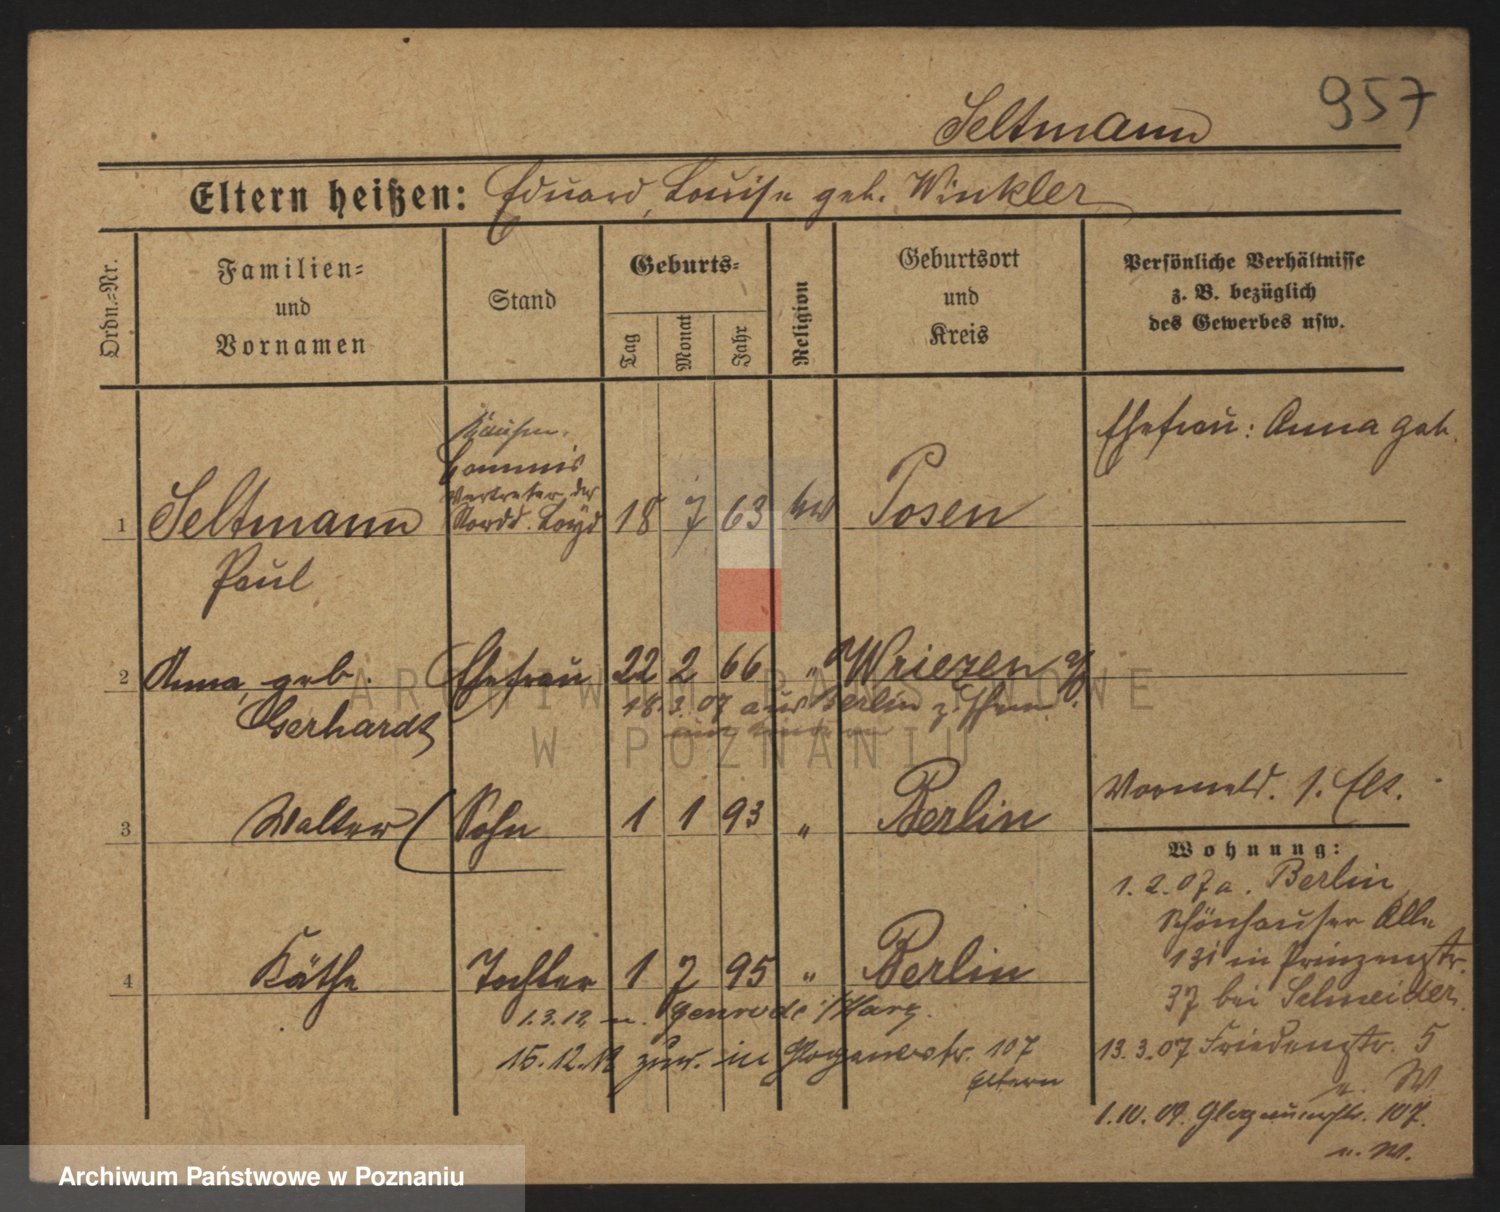 957
Seltmann
Eltern heißen: Eduard, Louise geb. Winkler
Ordn.-Nr.
Familien- und Vornamen
Stand
Geburts-
Tag
Monat
Jahr
Religion
Geburtsort und Kreis
Persönliche Verhältnisse z. B. bezüglich des Gewerbes usw.
Ehefrau: Anna geb.
Kaufm.
Commis
Vertreter der
1 Seltmann Nordd. Loyd 18 7 63 Posen
Paul
2 Anna, geb. Ehefrau 22 2 66 " Wriezen a/O.
Gerhardt 18.3.07 aus Berlin z. Ehem.
3 Walter Sohn 1 1 93 " Berlin
Vormeld. s. Elt.
Wohnung:
1.2.07 a. Berlin
Schönhauser Alle
131 in Prinzenstr.
37 bei Schneider
4 Käthe Tochter 1 7 95 " Berlin
1.3.12 n. Genrode i/Harz.
15.12.12 zur. in Glogauerstr. 107
Eltern
13.3.07 Friedenstr. 5
u. W
1.10.09. Glogauerstr. 107.
u. W.
ARCHIWUM PAŃSTWOWE
W POZNANIU
Archiwum Państwowe w Poznaniu